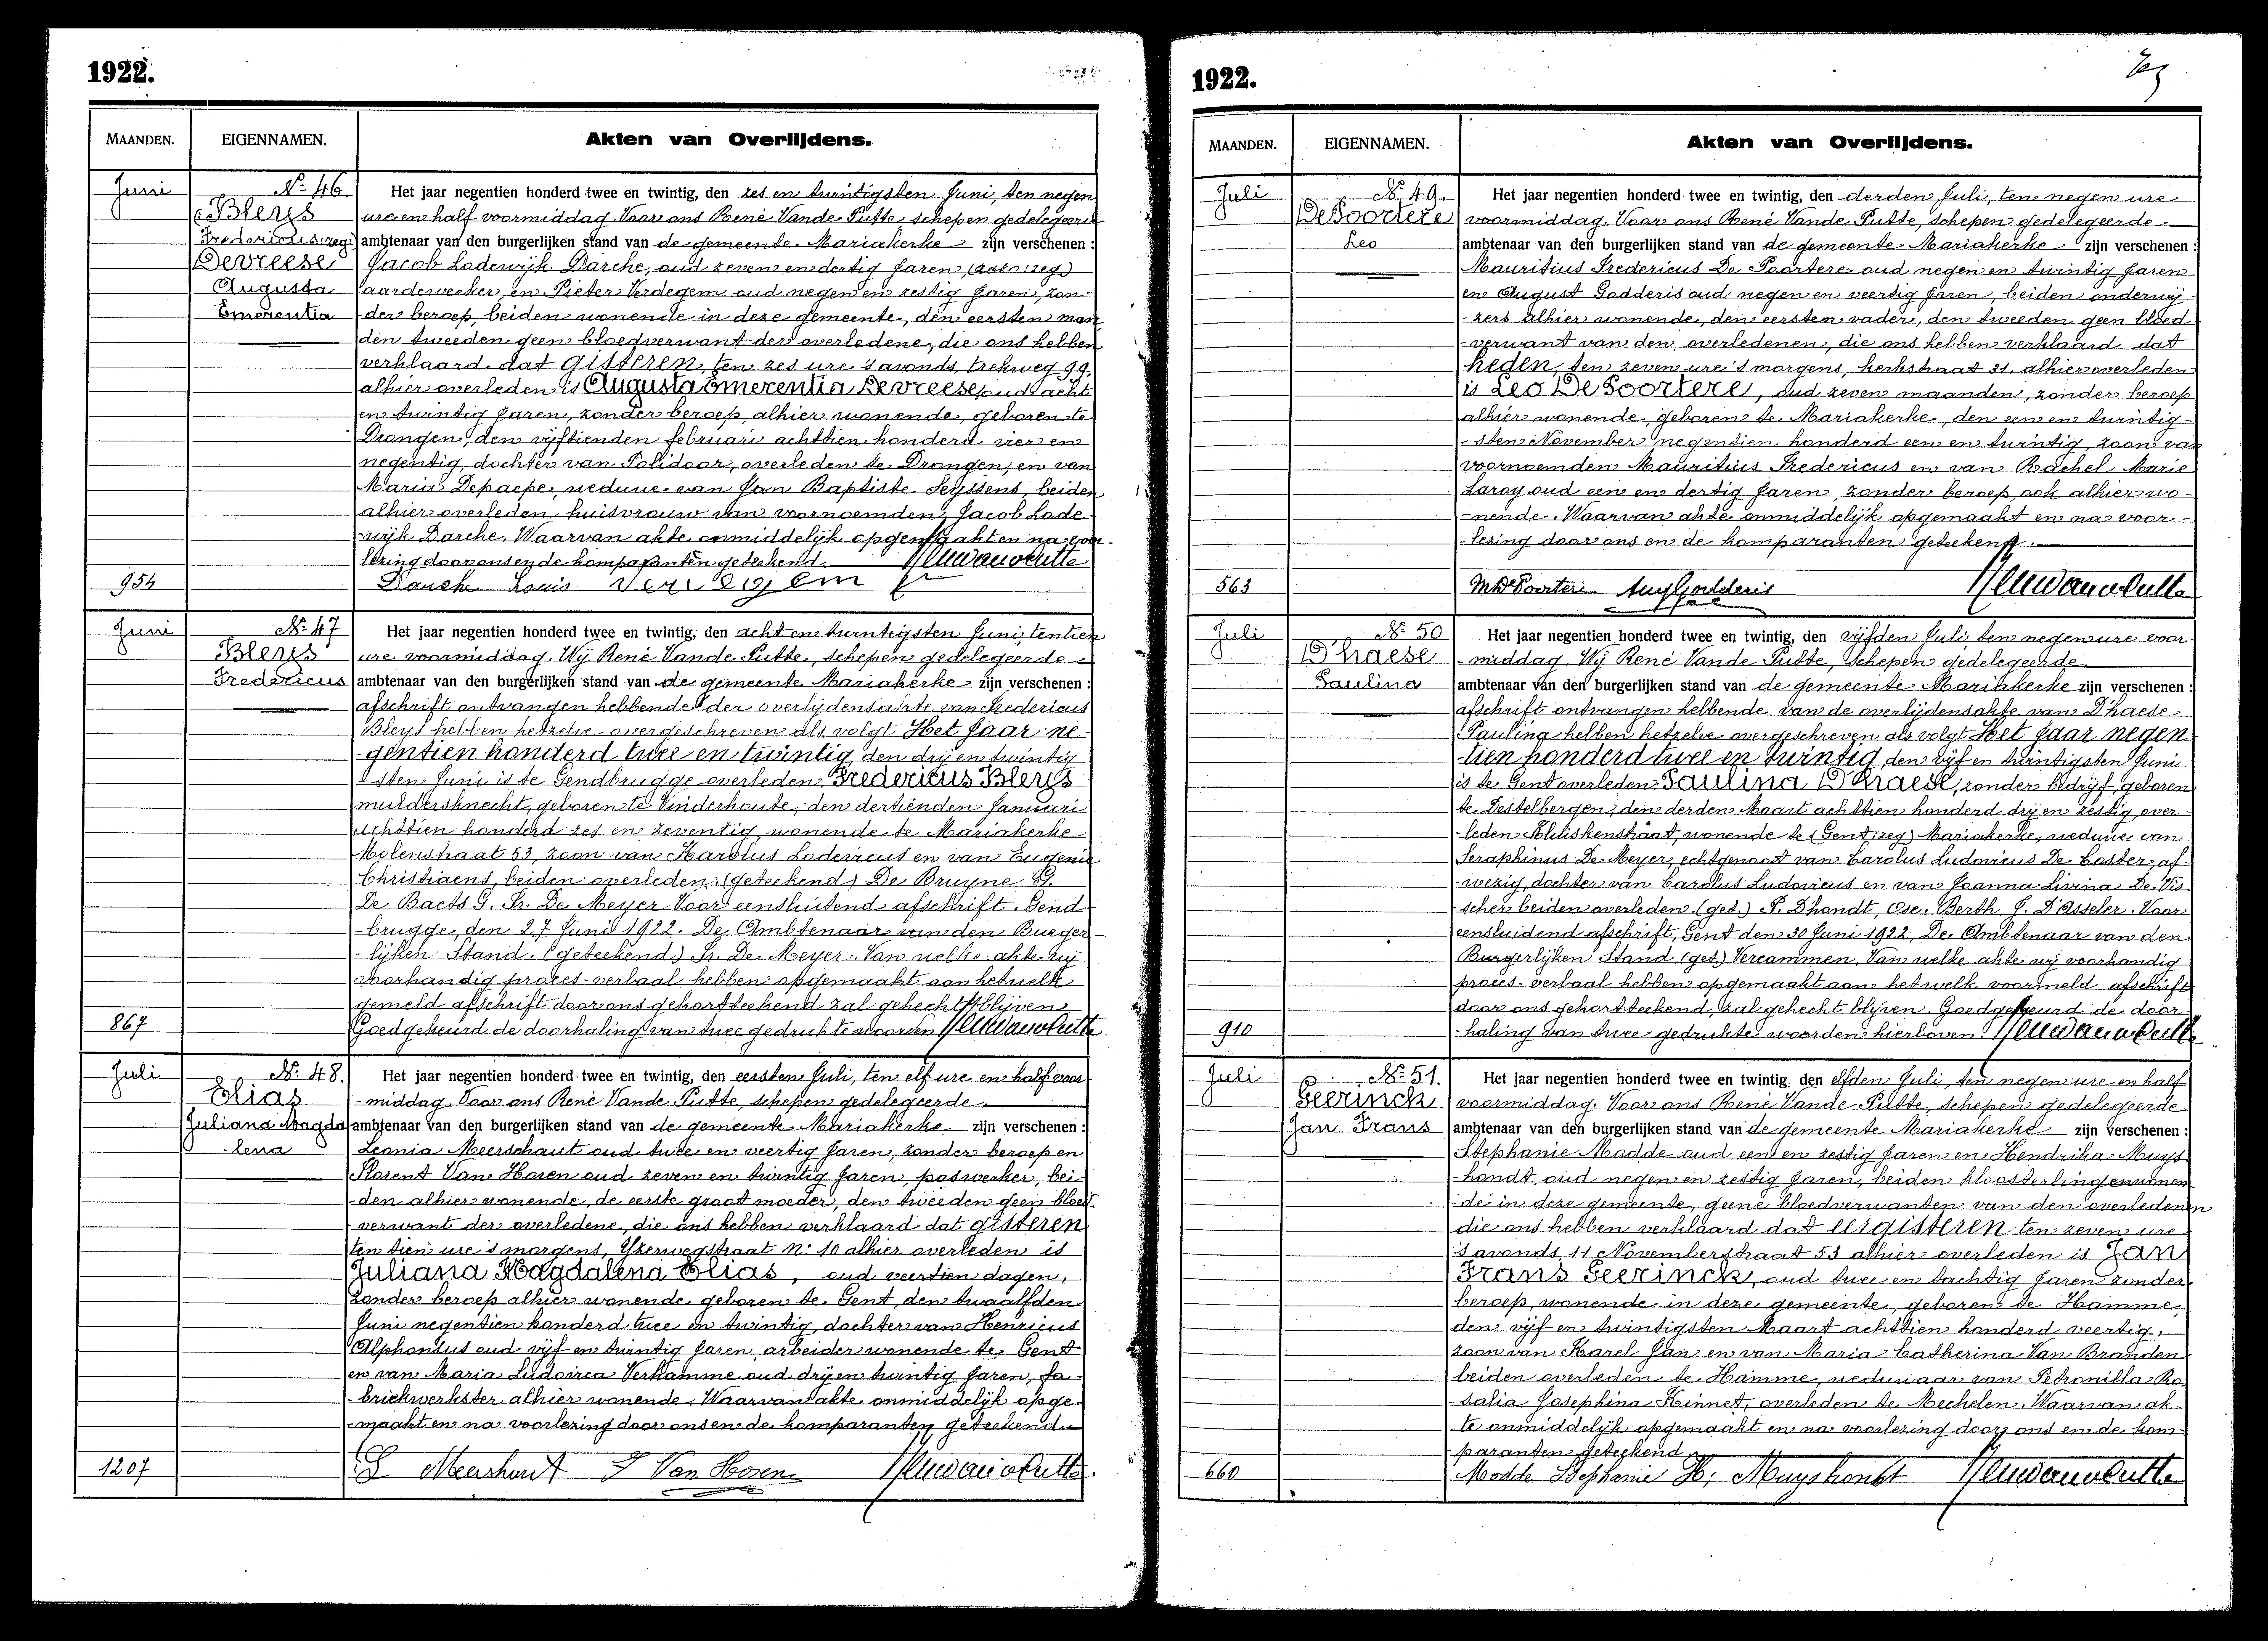 1922.
MAANDEN. EIGENNAMEN. Akten van Overlijdens.
Juni
No 46.
(Bleys
Fredericus: reg.)
Devreese
Augusta
Emerentia
954
Het jaar negentien honderd twee en twintig, den zes en twintigsten Juni, ten negen
ure en half voormiddag. Voor ons René Vande Putte, schepen gedelegeerde
ambtenaar van den burgerlijken stand van de gemeente Mariakerke zijn verschenen:
Jacob Lodewijk Darche, oud zeven en dertig jaren,
aardewerker en Pieter Verdegem oud negen en zestig jaren, zon-
der beroep, beiden wonende in deze gemeente, den eersten man,
den tweeden geen bloedverwant der overledene, die ons hebben
verklaard dat gisteren, ten zes ure 's avonds, trekweg 99,
alhier overleden is Augusta Emerentia Devreese, oud acht
en twintig jaren, zonder beroep, alhier wonende, geboren te
Drongen, den vijftienden februari achttien honderd vier en
negentig, dochter van Polidoor, overleden te Drongen, en van
Maria Depaepe, weduwe van Jan Baptiste Seyssens, beiden
alhier overleden huisvrouw van voornoemden Jacob Lode-
wijk Darche. Waarvan akte onmiddelijk opgemaakt en na voor-
lezing door ons en de komparanten geteekend.
Darche Louis Verdegem
Juni
No 47
Bleys
Fredericus
867
Het jaar negentien honderd twee en twintig, den acht en twintigsten Juni, ten tien
ure voormiddag. Wij René Vande Putte, schepen gedelegeerde
ambtenaar van den burgerlijken stand van de gemeente Mariakerke zijn verschenen:
afschrift ontvangen hebbende der overlijdensakte van Fredericus
Bleys hebben hetzelve overgeschreven als volgt. Het jaar ne-
gentien honderd twee en twintig den drij en twintig
sten Juni is te Gendbrugge overleden Fredericus Bleys
muldersknecht, geboren te Vinderhoute, den dertienden Januari
achttien honderd zes en zeventig, wonende te Mariakerke
Molenstraat 53, zoon van Karolus Lodevicus en van Eugenie
Christiaens, beiden overleden. (geteekend) De Bruyne G.
De Baets G. Fr. De Meyer Voor eensluitend afschrift. Gend-
brugge, den 27 Juni 1922. De Ambtenaar van den Burger-
lijken Stand. (geteekend) Fr. De Meyer. Van welke akte wij
voorhandig proces-verbaal hebben opgemaakt aan hetwelk
gemeld afschrift door ons gekortteekend zal gehecht blijven
Goedgekeurd de doorhaling van twee gedrukte woorden
Juli
No 48.
Elias
Juliana Magda
lena
1207
Het jaar negentien honderd twee en twintig, den eersten Juli, ten elf ure en half voor-
middag. Voor ons René Vande Putte, schepen gedelegeerde
ambtenaar van den burgerlijken stand van de gemeente Mariakerke zijn verschenen:
Leonia Meerschaut oud twee en veertig jaren, zonder beroep en
Florent Van Horen oud zeven en twintig jaren, paswerker, bei-
den alhier wonende, de eerste groot moeder, den tweeden geen bloed-
verwant der overledene, die ons hebben verklaard dat gisteren
ten tien ure 's morgens, Yzerwegstraat No 10 alhier overleden is
Juliana Magdalena Elias, oud veertien dagen,
zonder beroep alhier wonende geboren te Gent, den twaalfden
Juni negentien honderd twee en twintig, dochter van Henricus
Alphonsus oud vijf en twintig jaren, arbeider wonende te Gent
en van Maria Ludovica Verhamme oud drij en twintig jaren, fa-
briekwerkster alhier wonende. Waarvan akte onmiddelijk opge-
maakt en na voorlezing door ons en de komparanten geteekend.
L Meerschaut F Van Horen
1922.
MAANDEN. EIGENNAMEN. Akten van Overlijdens.
Juli
No 49.
De Poortere
Leo
563
Het jaar negentien honderd twee en twintig, den derden Juli, ten negen ure
voormiddag. Voor ons René Vande Putte, schepen gedelegeerde
ambtenaar van den burgerlijken stand van de gemeente Mariakerke zijn verschenen:
Mauritius Fredericus De Poortere oud negen en twintig jaren
en August Godderis oud negen en veertig jaren, beiden onderwij-
zers alhier wonende, den eersten vader, den tweeden geen bloed-
verwant van den overledenen, die ons hebben verklaard dat
heden, ten zeven ure 's morgens, kerkstraat 31 alhier overleden
is Leo De Poortere, oud zeven maanden, zonder beroep
alhier wonende, geboren te Mariakerke, den een en twintig-
sten November negentien honderd een en twintig, zoon van
voornoemden Mauritius Fredericus en van Rachel Marie
Laroy oud een en dertig jaren, zonder beroep, ook alhier wo-
nende. Waarvan akte onmiddelijk opgemaakt en na voor-
lezing door ons en de komparanten geteekend.
M De Poortere Aug Godderis
Juli
No 50
D'haese
Paulina
910
Het jaar negentien honderd twee en twintig, den vijfden Juli ten negen ure voor
middag. Wij René Vande Putte, schepen gedelegeerde
ambtenaar van den burgerlijken stand van de gemeente Mariakerke zijn verschenen:
afschrift ontvangen hebbende van de overlijdensakte van D'haese
Paulina hebben hetzelve overgeschreven als volgt Het jaar negen
tien honderd twee en twintig den vijf en twintigsten Juni
is te Gent overleden Paulina D'haese, zonder bedrijf, geboren
te Destelbergen, den derden Maart achttien honderd drij en zestig, over-
leden Kluiskenstraat, wonende te (Gent: reg) Mariakerke, weduwe van
Seraphinus De Meyer, echtgenoot van Carolus Ludovicus De Coster, af-
wezig, dochter van Carolus Ludovicus en van Joanna Livina De Vis-
scher beiden overleden. (get.) P. Dhondt, Osc. Berth, J. D'Asseler. Voor
eensluidend afschrift, Gent den 30 Juni 1922, De Ambtenaar van den
Burgerlijken Stand (get.) Vercammen. Van welke akte wij voorhandig
proces-verbaal hebben opgemaakt aan hetwelk voormeld afschrift
door ons gekortteekend, zal gehecht blijven. Goedgekeurd de door-
haling van twee gedrukte woorden hierboven.
Juli
No 51.
Geerinck
Jan Frans
660
Het jaar negentien honderd twee en twintig, den elfden Juli, ten negen ure en half
voormiddag. Voor ons René Vande Putte, schepen gedelegeerde
ambtenaar van den burgerlijken stand van de gemeente Mariakerke zijn verschenen:
Stephanie Modde oud een en zestig jaren en Hendrika Muys-
hondt, oud negen en zestig jaren, beiden kloosterlingen wonen-
de in deze gemeente, geene bloedverwanten van den overledenen
die ons hebben verklaard dat eergisteren ten zeven ure
's avonds, 11 Novemberstraat 53 alhier overleden is Jan
Frans Geerinck, oud twee en tachtig jaren zonder
beroep, wonende in deze gemeente, geboren te Hamme,
den vijf en twintigsten Maart achttien honderd veertig,
zoon van Karel Jan en van Maria Catherina Van Branden
beiden overleden te Hamme, weduwaar van Petronilla Ro-
salia Josephina Kinnet, overleden te Mechelen. Waarvan ak-
te onmiddelijk opgemaakt en na voorlezing door ons en de kom-
paranten geteekend.
Modde Stephanie H. Muyshondt